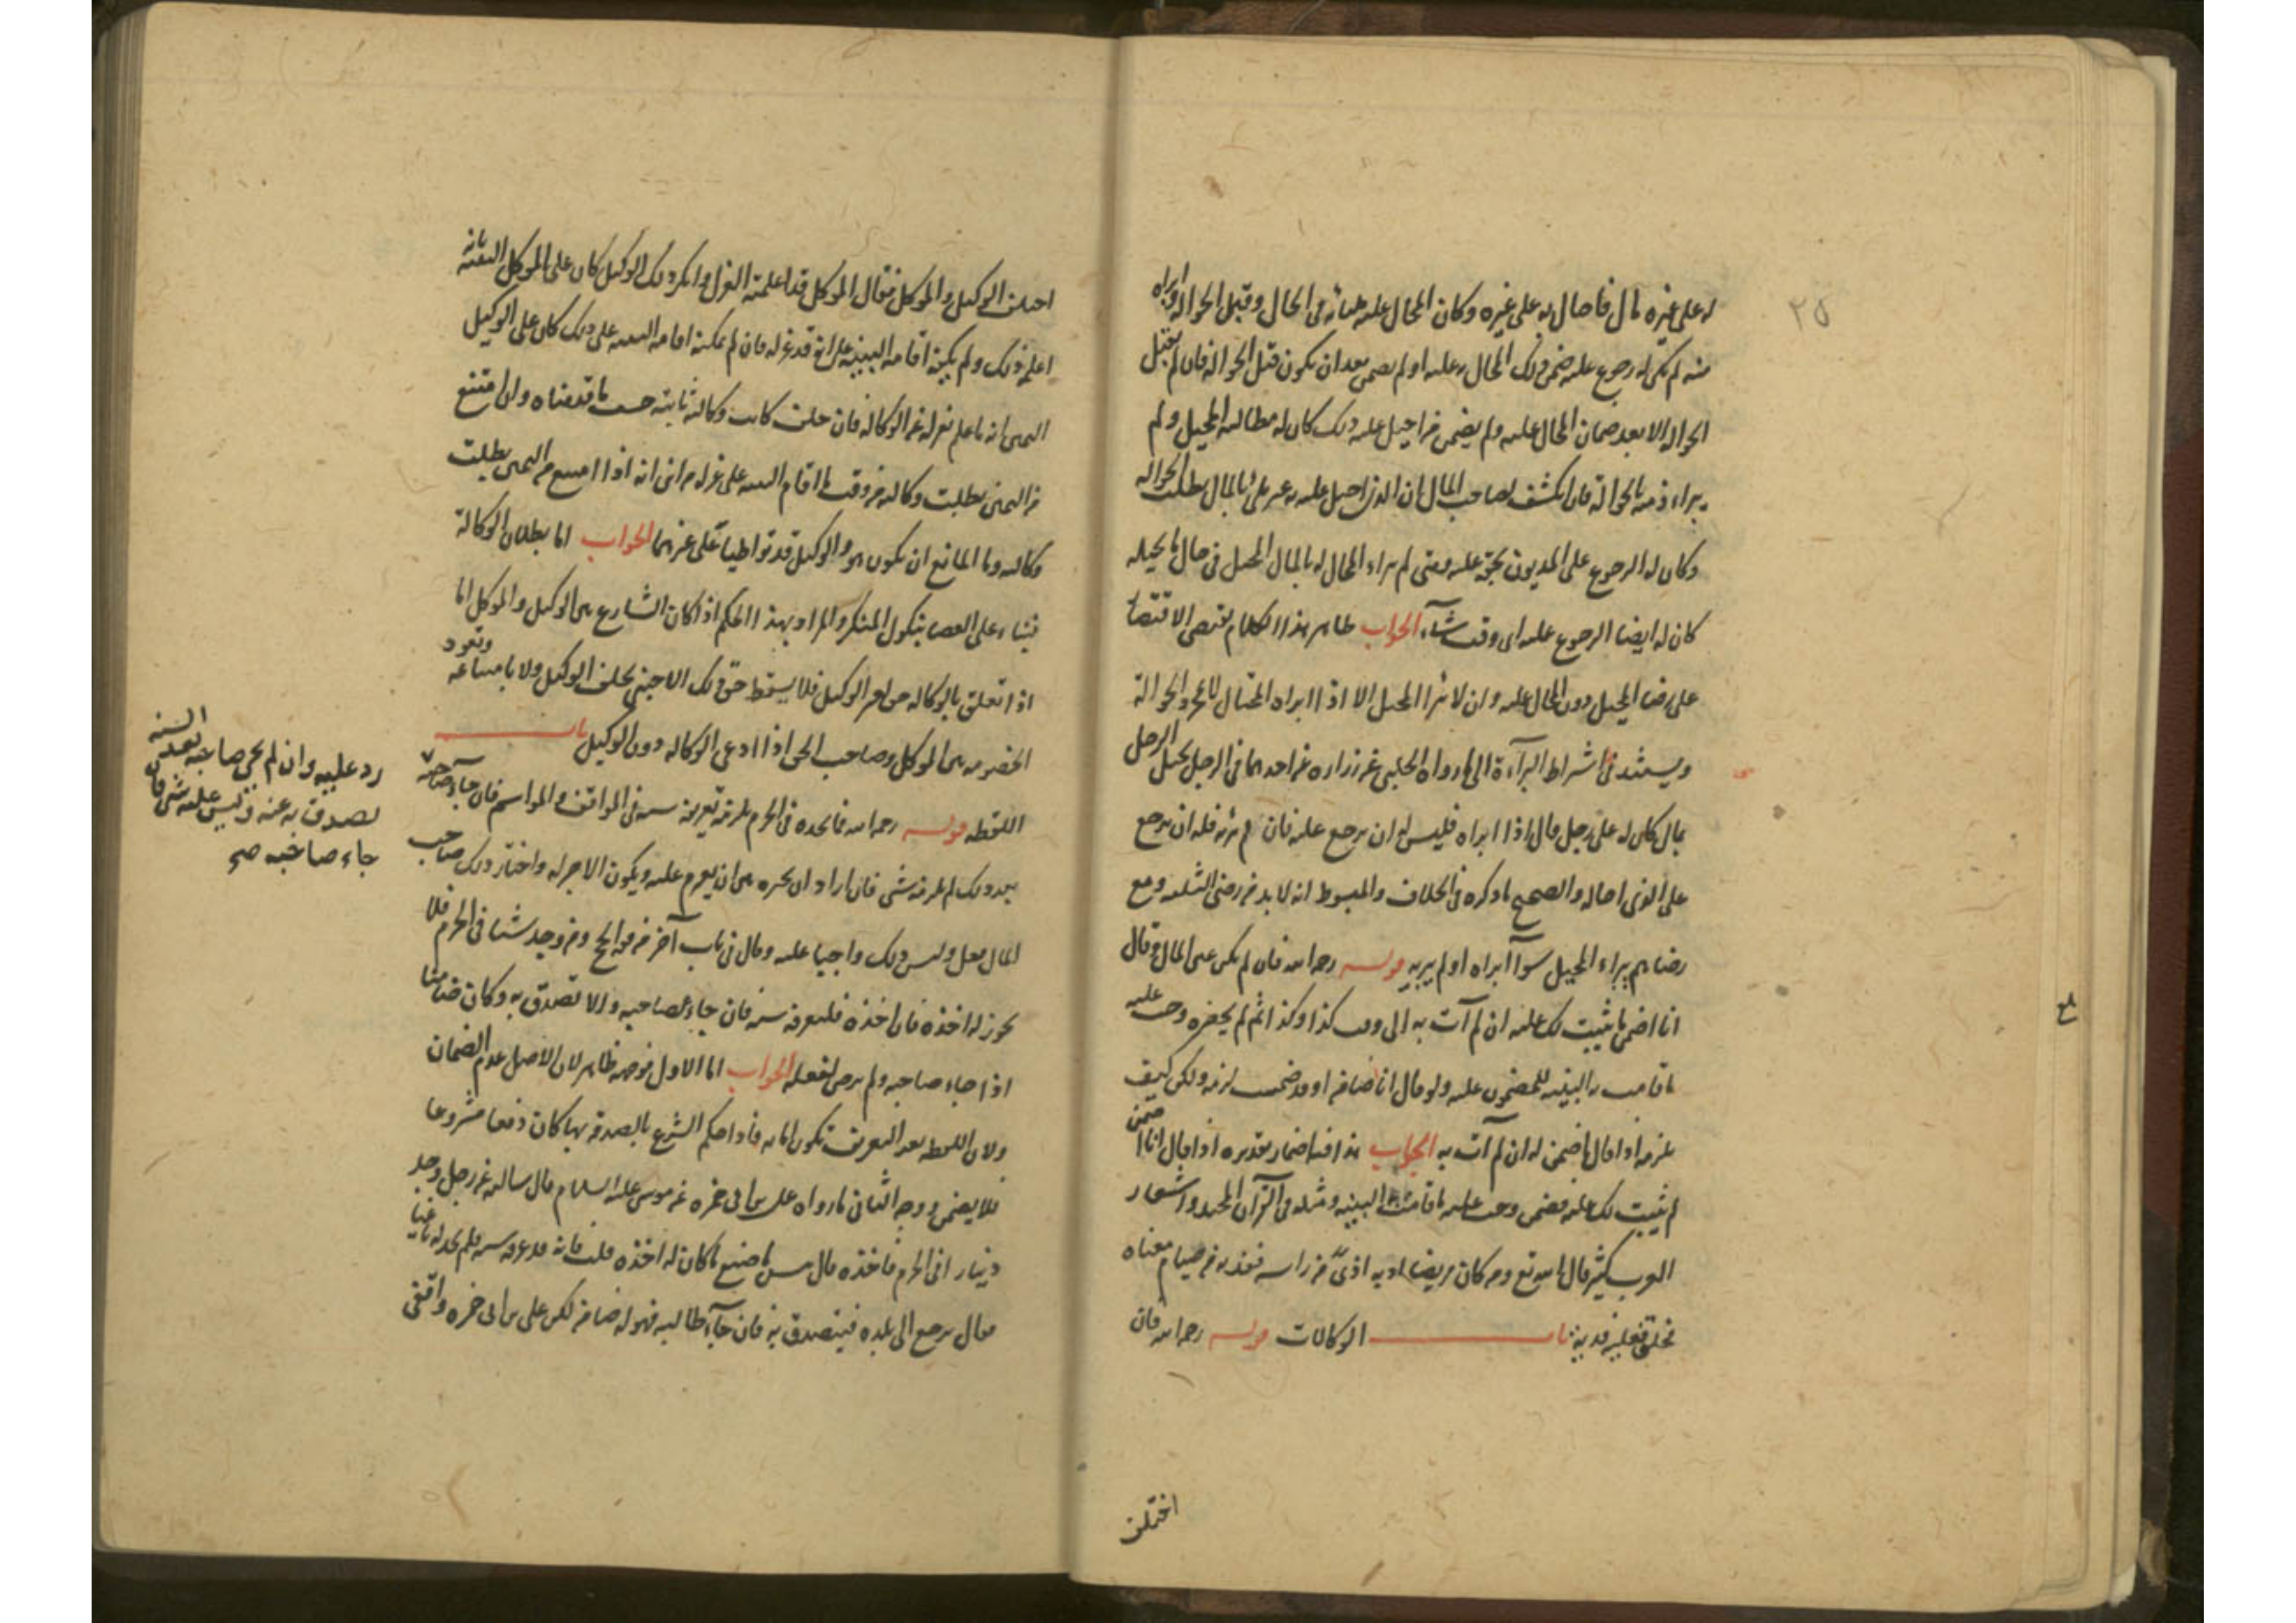 له على غيره مال فاحال به على غيره وكان المحال عليه مليا به فى الحال وقبل الحوالة وابراه
منه لم يكن له رجوع عليه ضمن ذلك المحال به عليه او لم يضمن بعد ان يكون قبل الحوالة فان لم يقبل
الحوالة الا بعد ضمان المحال عليه ولم يضمن من احيل عليه ذلك كان له مطالبة المحيل ولم
يبراء ذمته بالحوالة فان انكشف لصاحب المال ان الذى احيل عليه به غير ملى بالمال بطلت الحوالة
وكان له الرجوع على المديون بحقه عليه ومتى لم يبراء المحال له بالمال المحيل فى حال ما يحيله
كان له ايضا الرجوع عليه اى وقت شآء الجواب ظاهر هذا الكلام يقتضى الاقتصا
على رضا المحيل دون المحال عليه وان لا يبرا المحيل الا اذا ابراه المحتال لا بمجرد الحوالة
ويستند فى اشتراط البرآءة الى ما رواه الحلبى عن زراره عن احدهما فى الرجل يحيل الرجل
بمال كان له على رجل قال اذا ابراه فليس له ان يرجع عليه فان لم يبرئه فله ان يرجع
على الذى احاله والصحيح ما ذكره فى الخلاف والمبسوط انه لا بد من رضى الثلثه ومع
رضاهم يبراء المحيل سوآ ابراه او لم يبريه قوله رحمه الله فان لم يكن عين المال وقال
انا اضمن ما يثبت لك عليه ان لم آت به الى وقت كذا وكذا ثم لم يحضره وجب عليه
ما قامت به البينه للمضمون عليه ولو قال انا ضامن او قد ضمنت لزمه ولكن كيف
يلزمه اذا قال اضمن له ان لم آت به الجواب هذا فيه اضمار تقديره اذا قال انا اضمن
لم يثبت لك عليه فضمن وجب عليه ما قامت به البينه ومثله فى القرآن المجيد واشعار
العرب كثير قال الله تع ومن كان مريضا او به اذىً من راسه ففديه من صيام معناه
فحلق فعليه فدية باب الوكالات قوله رحمه الله فان
٢٥
اختلف
اختلف الوكيل والموكل فقال الموكل قد اعلمته العزل وانكر ذلك الوكيل كان على الموكل البينه بانه
اعلمه ذلك ولم يكنه اقامه البينه على انه قد عزله فان لم يمكنه اقامه البينه على ذلك كان على الوكيل
اليمين انه ما علم بعزله عن الوكاله فان حلف كانت وكالته ثابته حسب ما قدمناه وان امتنع
من اليمين بطلت وكالته من وقت ما اقام البينه على عزله من انى انه اذا امتنع من اليمين بطلت
وكالته وما المانع ان يكون هو والوكيل قد تواطيا على غريمهما الجواب اما بطلان الوكالة
فبناء على القضا بنكول المنكر والمراد بهذا الحكم اذا كان التنازع بين الوكيل والموكل اما
اذا تعلق بالوكاله حق لغير الوكيل فلا يسقط حق ذلك الاجنبى بحلف الوكيل ولا بامتناعه وتعود
الخصومه بين الموكل وصاحب الحق اذا ادعى الوكاله دون الوكيل باب
اللقطه قوله رحمه الله فما يجده فى الحرم يلزمه تعريفه سنه فى المواقف والمواسم فان جآء صاحبه
بعد ذلك لم يلزمه شى فان اراد ان يخيره بين ان يغرم عليه ويكون الاجر له واختار ذلك صاحب
المال فعل وليس ذلك واجبا عليه وقال فى باب آخر من الحج ومن وجد شيئا فى الحرم فلا
يجوز له اخذه فان اخذه فليعرفه سنه فان جاء صاحبه والا تصدق به وكان ضامنا
اذا جاء صاحبه ولم يرض بفعله الجواب اما الاول فوجهه ظاهر لان الاصل عدم الضمان
ولان اللقطه بعد التعريف تكون امانه فاذا حكم الشرع بالصدقه بها كان دفعا مشروعا
فلا يضمن ووجه الثانى ما رواه على بن ابى حمزه عن موسى عليه السلام قال سالته عن رجل وجد
دينارا فى الحرم فاخذه قال بئس ما صنع ما كان له اخذه قلت فانه قد عرفه سنه فلم يجد له باغيا
فقال يرجع الى بلده فيتصدق به فان جآء طالبه فهو له ضامن لكن على بن ابى حمزه واقفى
رد عليه وان لم يجئ صاحبه بعد السنه
تصدق به عنه وليس عليه شى فان
جاء صاحبه صح